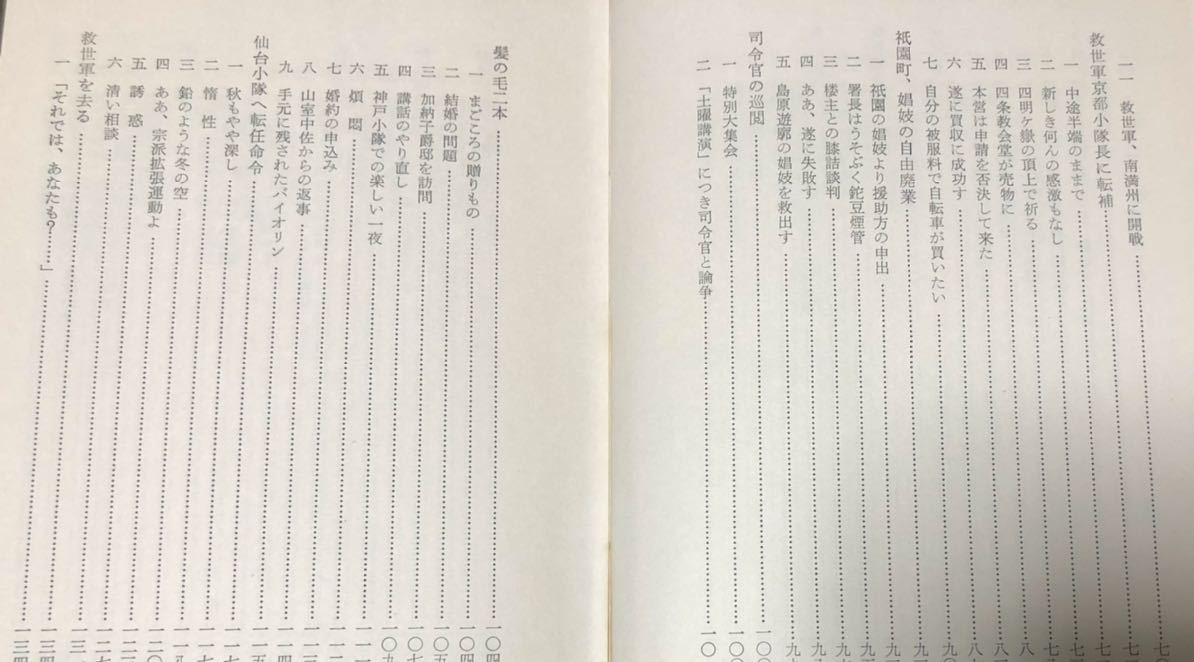 一一　救世軍、南満州に開戦……七〇
救世軍京都小隊長に転補
一　中途半端のままで
二　新しき何んの感激もなし
三　四明ケ嶽の頂上で祈る
四　四条教会堂が売物に
五　本営は申請を否決して来た
六　遂に買収に成功す
七　自分の被服料で自転車が買いたい
祇園町、娼妓の自由廃業
一　祇園の娼妓より援助方の申出
二　署長はうそぶく鉈豆煙管
三　楼主との膝詰談判
四　ああ、遂に失敗す
五　島原遊廓の娼妓を救出す
司令官の巡閲……一〇〇
一　特別大集会……一〇〇
二　「土曜講演」につき司令官と論争
髪の毛二本……一〇四
一　まごころの贈りもの……一〇四
二　結婚の問題……一〇五
三　加納子爵邸を訪問……一〇七
四　講話のやり直し……一〇九
五　神戸小隊での楽しい一夜
六　煩　悶
七　婚約の申込み
八　山室中佐からの返事
九　手元に残されたバイオリン
仙台小隊へ転任命令
一　秋もやや深し
二　惰　性
三　鉛のような冬の空
四　ああ、宗派拡張運動よ
五　誘　惑
六　清い相談
救世軍を去る
一　「それでは、あなたも？……」